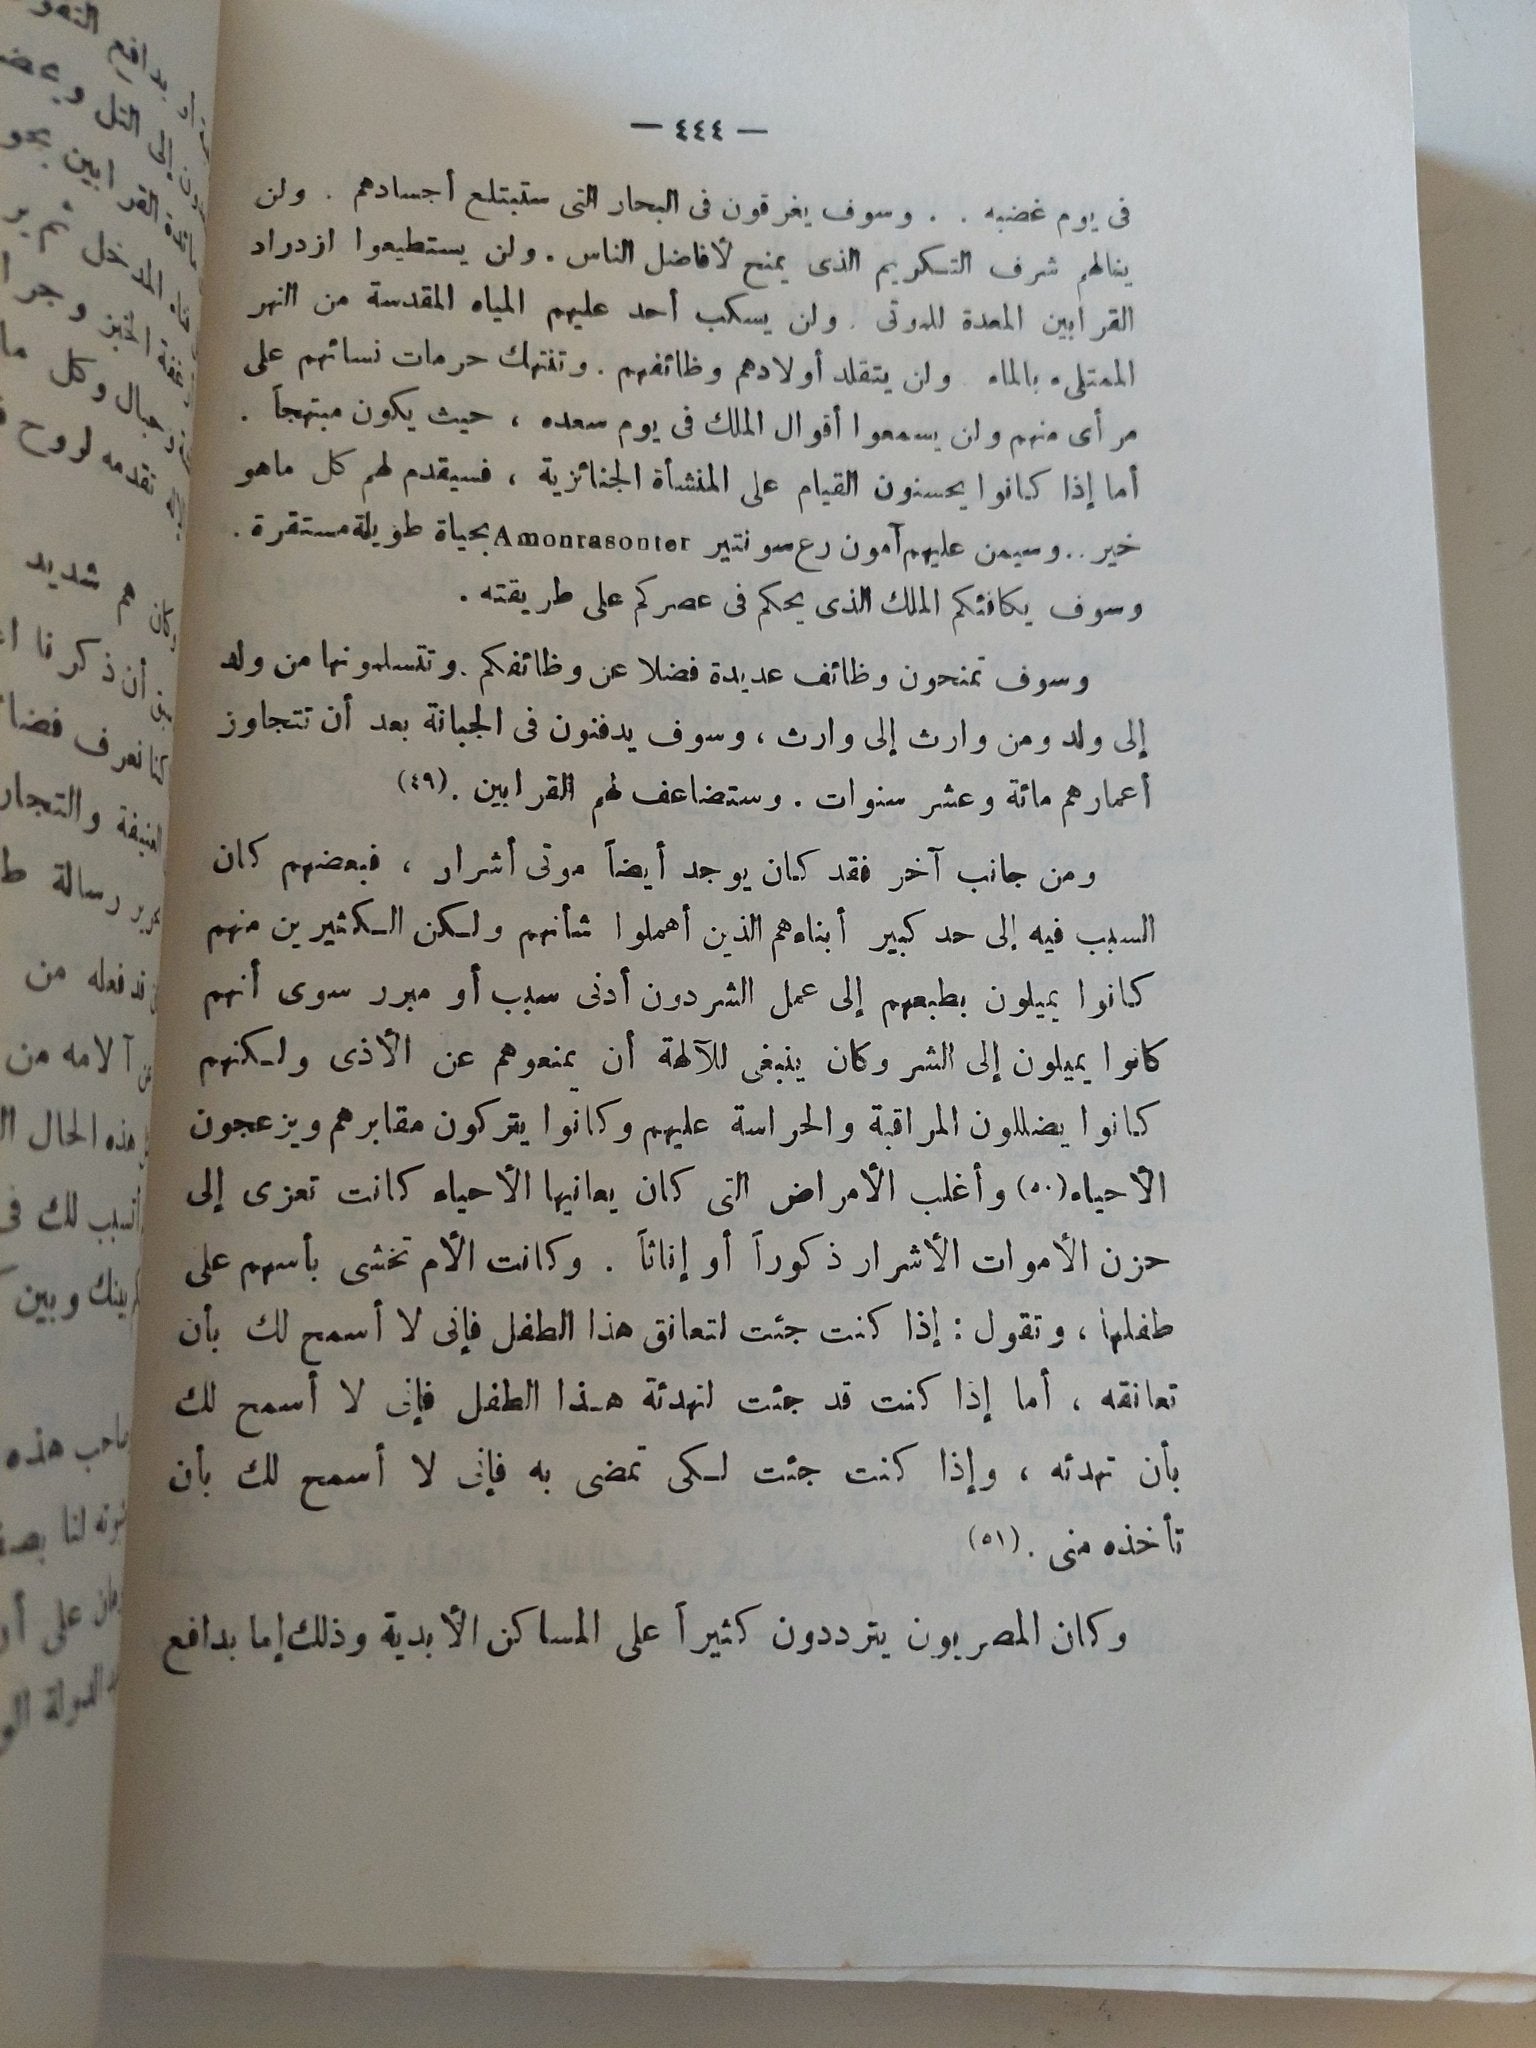 — ٤٤٤ —
فى يوم غضبه . . وسوف يغرقون فى البحار التى ستبتلع أجسادهم . ولن
ينالهم شرف التكريم الذى يمنح لأفاضل الناس . ولن يستطيعوا ازدراد
القرابين المعدة للموتى . ولن يسكب أحد عليهم المياه المقدسة من النهر
الممتلىء بالماء . ولن يتقلد أولادهم وظائفهم . وتنتهك حرمات نسائهم على
مرأى منهم ولن يسمعوا أقوال الملك فى يوم سعده ، حيث يكون مبتهجاً .
أما إذا كانوا يحسنون القيام على المنشأة الجنائزية ، فسيقدم لهم كل ماهو
خير . . وسيمن عليهم آمون رع سونتير Amonrasonter بحياة طويلة مستقرة .
وسوف يكافئكم الملك الذى يحكم فى عصركم على طريقته .
وسوف تمنحون وظائف عديدة فضلا عن وظائفكم . وتتسلمونها من ولد
إلى ولد ومن وارث إلى وارث ، وسوف يدفنون فى الجبانة بعد أن تتجاوز
أعمارهم مائة وعشر سنوات . وستضاعف لهم القرابين . (٤٩)
ومن جانب آخر فقد كان يوجد أيضاً موتى أشرار ، فبعضهم كان
السبب فيه إلى حد كبير أبناءهم الذين أهملوا شأنهم ولكن الكثيرين منهم
كانوا يميلون بطبعهم إلى عمل الشر دون أدنى سبب أو مبرر سوى أنهم
كانوا يميلون إلى الشر وكان ينبغى للآلهة أن يمنعوهم عن الأذى ولكنهم
كانوا يضللون المراقبة والحراسة عليهم وكانوا يتركون مقابرهم ويزعجون
الأحياء (٥٠) وأغلب الأمراض التى كان يعانيها الأحياء كانت تعزى إلى
حزن الأموات الأشرار ذكوراً أو إناثاً . وكانت الأم تخشى بأسهم على
طفلها ، وتقول : إذا كنت جئت لتعانق هذا الطفل فإنى لا أسمح لك بأن
تعانقه ، أما إذا كنت قد جئت لتهدئة هذا الطفل فإنى لا أسمح لك
بأن تهدئه ، وإذا كنت جئت لكى تمضى به فإنى لا أسمح لك بأن
تأخذه منى . (٥١)
وكان المصريون يترددون كثيراً على المساكن الأبدية وذلك إما بدافع